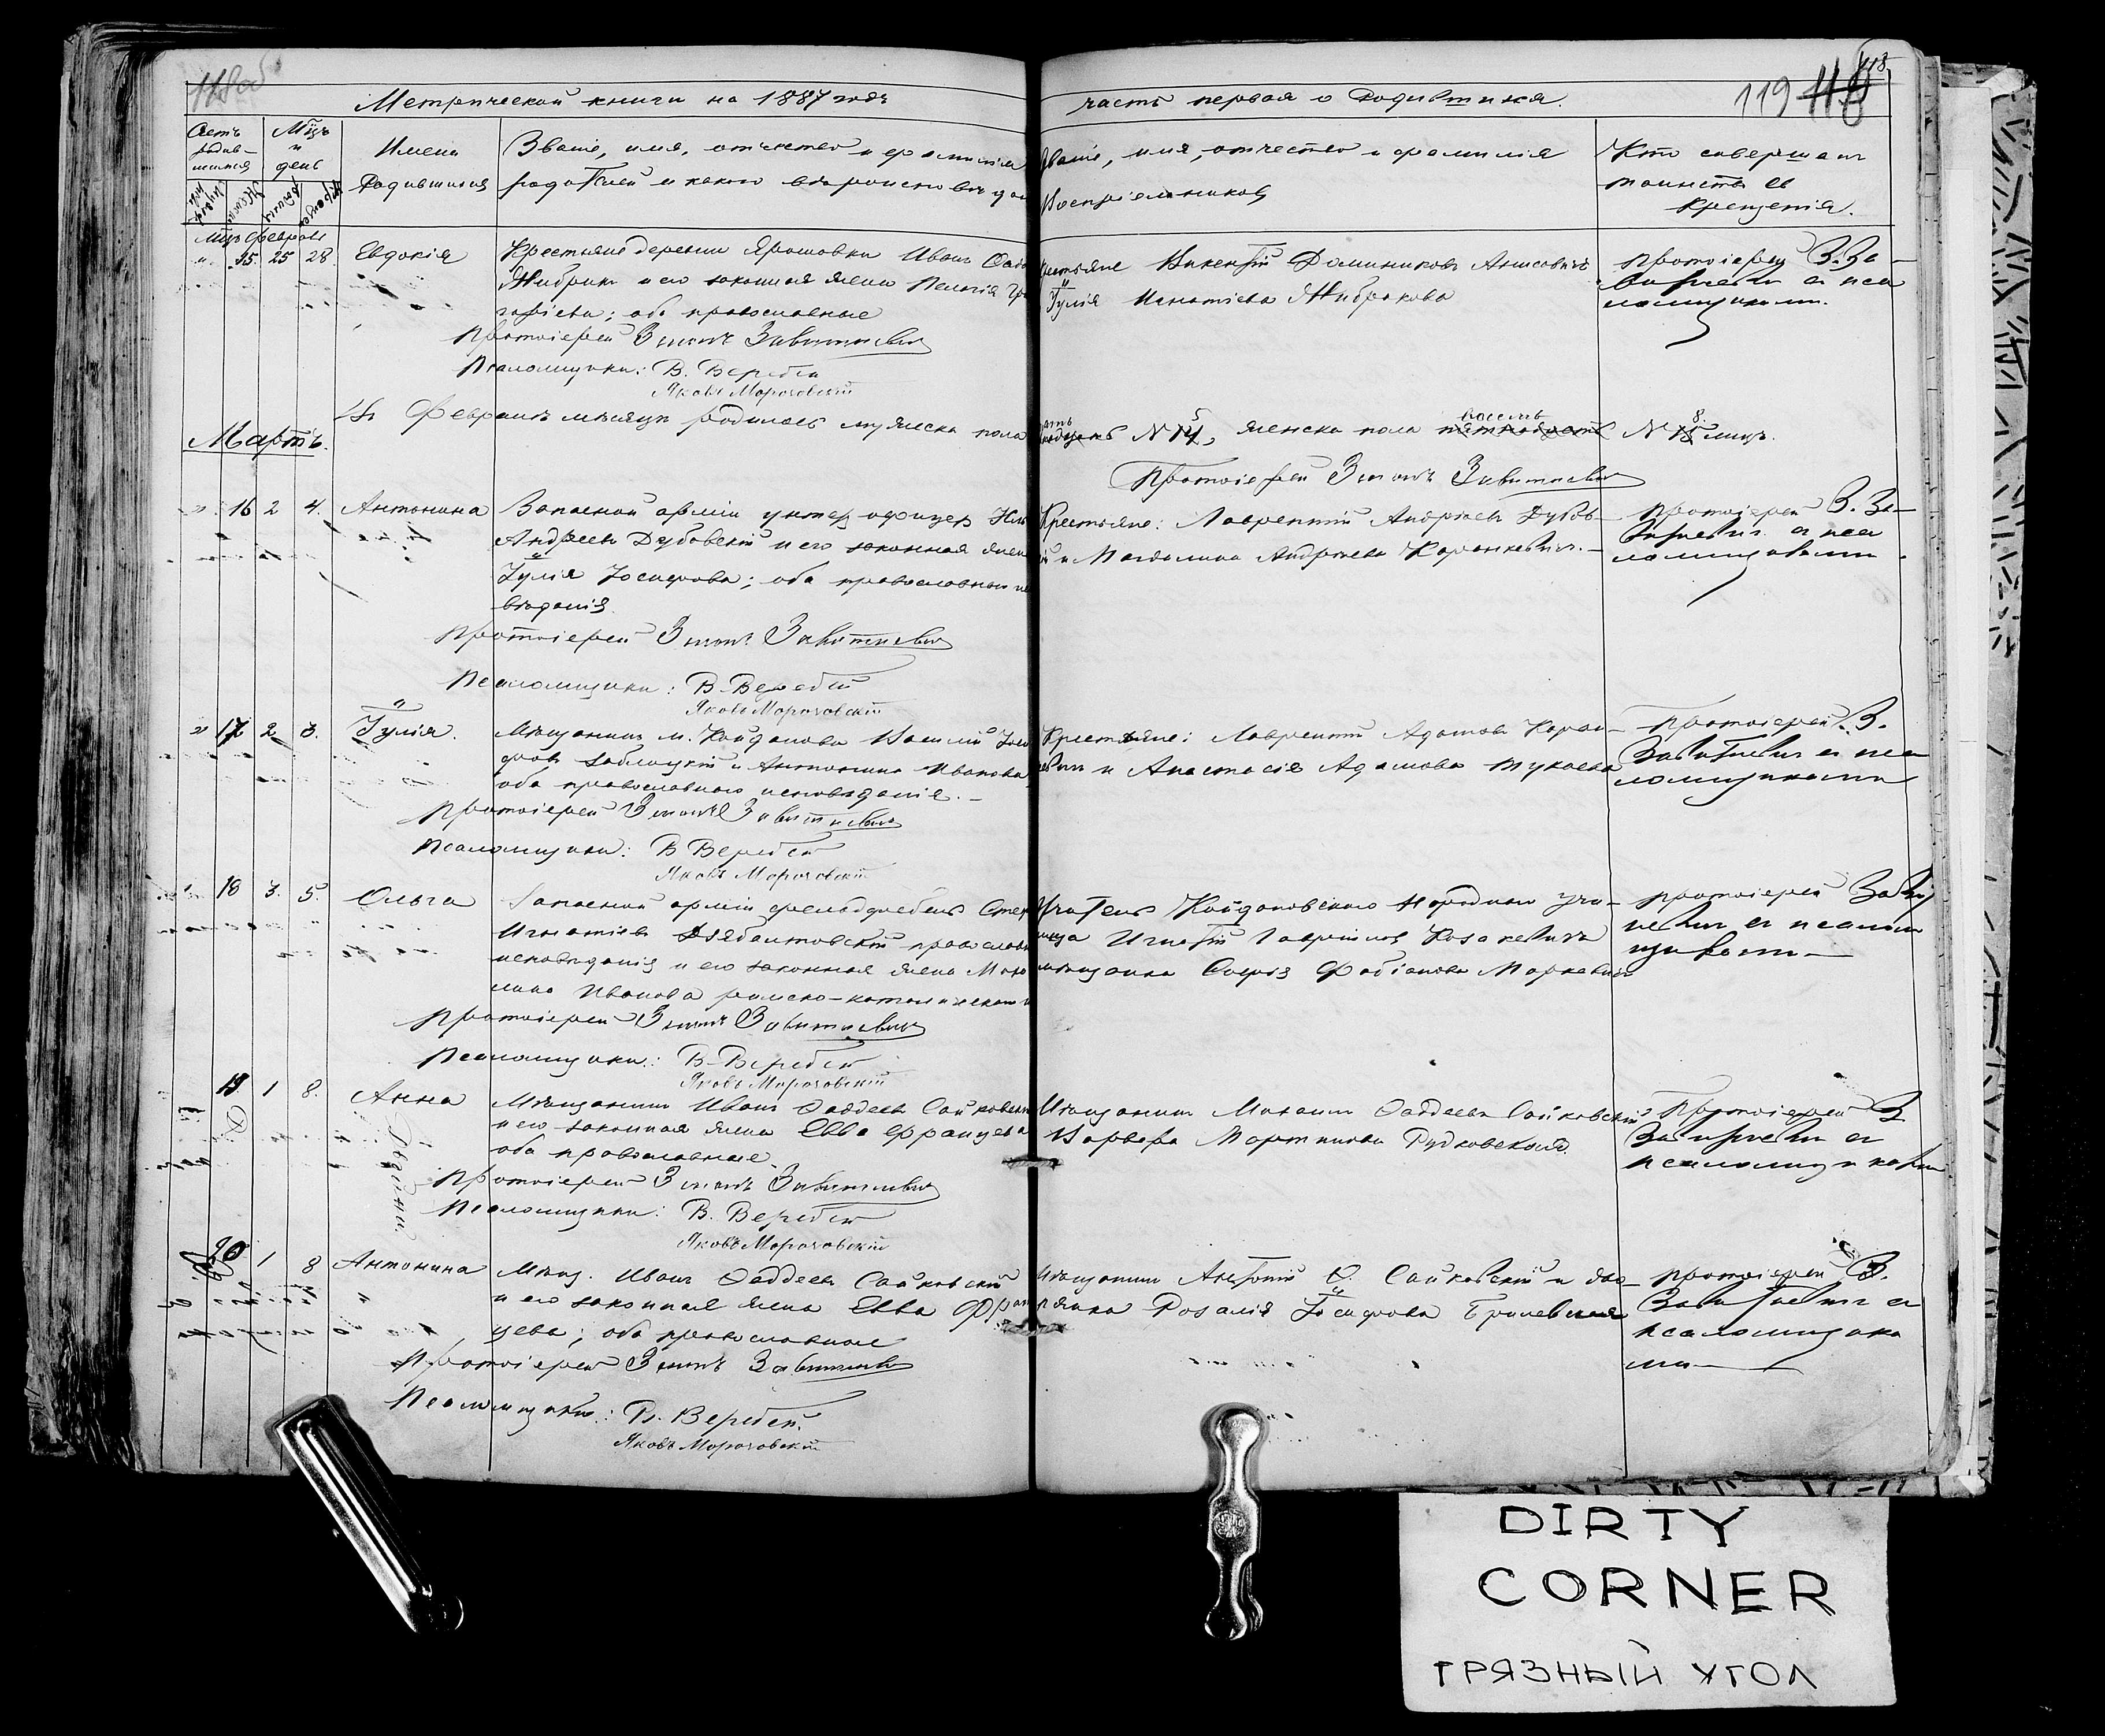 118об
Метрической книги на 1887 годъ
часть первая о Родившихся.
119 118
118
Счетъ родив-шихся
Мѣсяцъ и день
Имена Родившихся
Званіе, имя, отчество и фамилія
родителей и какого вѣроисповѣдан
Званіе, имя, отчество и фамилія
Воспріемниковъ
Кто совершалъ
таинство св
Крещенія.
Мцъ Февраль
" 15. 25 28. Евдокія
Крестьяне деревни Ярошовки Иванъ
Жибрикъ и его законная жена Пелагія Гри
горіева; оба православные
Протоіерей Зинонъ Завитневичъ
Псаломщики: В. Веребей
Яковъ Морочовскій
Крестьяне Викентій Доминиковъ
и Іулія Игнатіева Жибрикова
Протоіерей З. За-
витневичъ съ пса
ломщиками.
Въ Февралѣ мѣсяцѣ родилось мужеска пола
пять № 5, женска пола восемь № 8 лицъ.
Протоіерей Зинонъ Завитневичъ
Мартъ.
" 16 2 4. Антонина
Запасной арміи унтер офицеръ
Андреевъ Дубовскій и его законная жена
Іулія Іосифова; оба православнаго
вѣданія
Протоіерей Зинонъ Завитневичъ
Псаломщики: В. Веребей
Яковъ Морочовскій
Крестьяне: Лаврентій Андреевъ Дубов-
и Магдалина Андреева Каранкевичъ.-
Протоіерей З. За-
витневичъ съ пса
ломщиками
" 17 2 3. Іулія.
Мѣщанинъ м. Койданова Василій Іоси
фовъ Заблоцкій и Антонина Иванова
оба православнаго исповѣданія.-
Протоіерей Зинонъ Завитневичъ
Псаломщики: В Веребей
Яковъ Морочовскій
Крестьяне: Лаврентій Адамовъ
и Анастасія Адамова
Протоіерей З.
Завитневичъ съ пса
ломщиками
" 18 3. 5. Ольга
Запасной арміи фельдфебель
Игнатіевъ православн
исповѣданія и его законная жена
Иванова римско-католическаго
Протоіерей Зинонъ Завитневичъ
Псаломщики: В. Веребей
Яковъ Морочовскій
Учитель Койдановскаго Народнаго учи-
лища Игнатій Гавріиловъ Козакевичъ
мѣщанка Софія Фабіанова Маркевичъ
Протоіерей Завит
невичъ съ псалом
щиками-
19 1 8. Анна
Двойни.
Мѣщанинъ Иванъ Ѳаддеевъ Сайковскій
и его законная жена Евва Францева
оба православные.
Протоіерей Зинонъ Завитневичъ
Псаломщики: В. Веребей
Яковъ Морочовскій
Мѣщанинъ Михаилъ Ѳаддеевъ Сайковскій
Варвара Мартинова Рудковская
Протоіерей З.
Завитневичъ съ
псаломщиками
20 1 8 Антонина
Мѣщ. Иванъ Ѳаддеевъ Сайковскій
и его законная жена Евва Фран
цева; оба православные
Протоіерей Зинонъ Завитневичъ
Псаломщики: В. Веребей.
Яковъ Морочовскій
Мѣщанинъ Антоній Ѳ. Сайковскій и дво-
рянка Розалія Іосифова
Протоіерей З.
Завитневичъ съ
псаломщика
ми-
DIRTY
CORNER
ГРЯЗНЫЙ УГОЛ